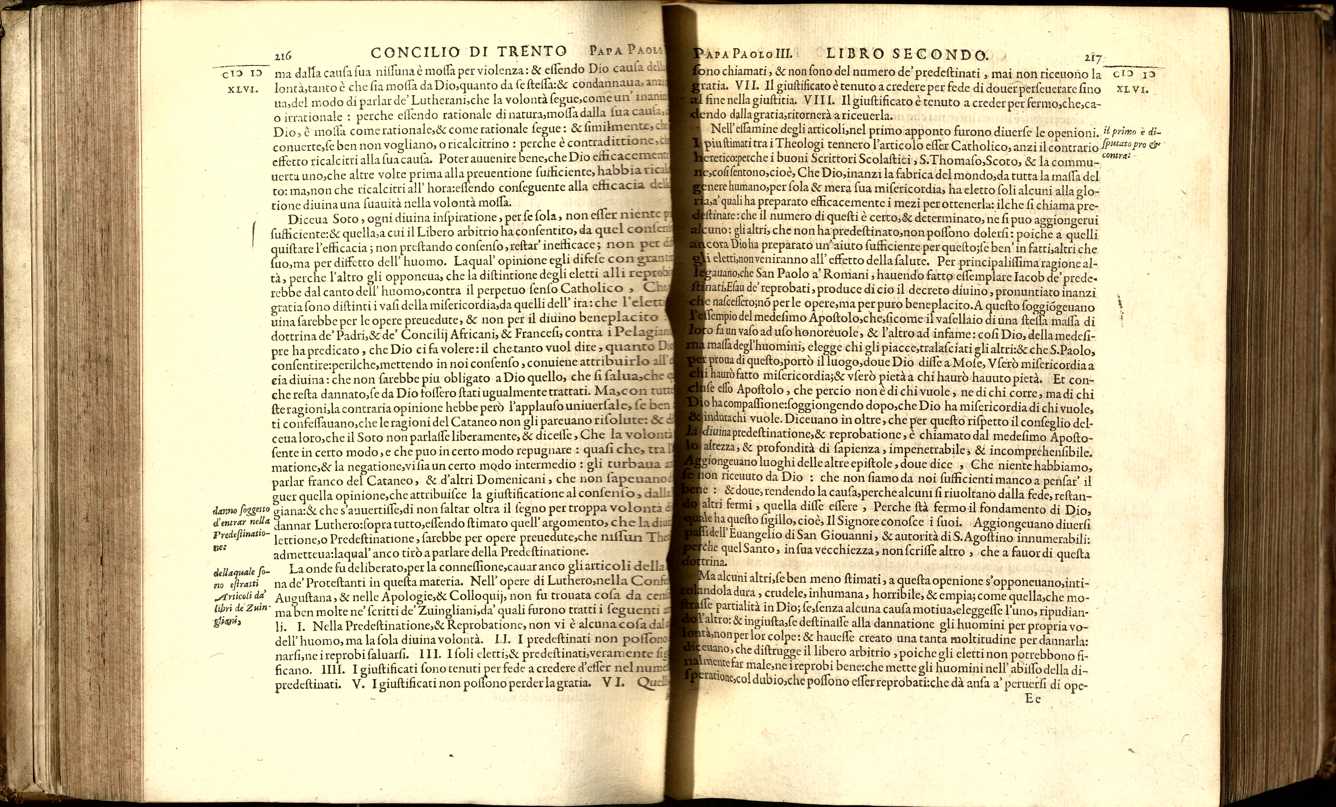 216 CONCILIO DI TRENTO PAPA PAOLO
CIƆ IƆ
XLVI.
ma dalla cauſa ſua niſſuna è moſſa per violenza: & eſſendo Dio cauſa della
lontà, tanto è che ſia moſſa da Dio, quanto da ſe ſteſſa: & condannaua, anzi
ua, del modo di parlar de' Lutherani, che la volontà ſegue, come un' inanim
o irrationale : perche eſſendo rationale di natura, moſſa dalla ſua cauſa,
Dio, è moſſa come rationale, & come rationale ſegue : & ſimilmente, che
conuerte, ſe ben non vogliano, o ricalcitrino : perche è contradittione, ch
effetto ricalcitri alla ſua cauſa. Poter auuenire bene, che Dio efficacement
uerta uno, che altre volte prima alla preuentione ſufficiente, habbia ricalc
to: ma, non che ricalcitri all' hora: eſſendo conseguente alla efficacia della
tione diuina una ſuauità nella volontà moſſa.
Diceua Soto, ogni diuina inſpiratione, per ſe ſola, non eſſer niente p
ſufficiente: & quella, a cui il Libero arbitrio ha conſentito, da quel conſenſ
quiſtare l'efficacia; non preſtando conſenſo, reſtar' inefficace; non per d
ſuo, ma per diffetto dell' huomo. Laqual' opinione egli difeſe con grant
tà, perche l'altro gli opponeua, che la diſtintione degli eletti alli reprob
rebbe dal canto dell' huomo, contra il perpetuo ſenſo Catholico , Che
gratia ſono diſtinti i vaſi della miſericordia, da quelli dell' ira: che l'elett
uina ſarebbe per le opere preuedute, & non per il diuino beneplacito
dottrina de' Padri, & de' Concilij Africani, & Franceſi, contra i Pelagian
pre ha predicato , che Dio ci fa volere: il che tanto vuol dire , quanto D
conſentire: perilche, mettendo in noi conſenſo , conuiene attribuirlo all' e
cia diuina : che non ſarebbe piu obligato a Dio quello, che ſi ſalua, che q
che reſta dannato, ſe da Dio foſſero ſtati ugualmente trattati. Ma, con tutte
ſte ragioni, la contraria opinione hebbe però l'applauſo uniuerſale, ſe ben
ti confeſſauano, che le ragioni del Cataneo non gli pareuano riſolute: & d
ceua loro, che il Soto non parlaſſe liberamente, & diceſſe, Che la volontà
ſente in certo modo, e che puo in certo modo repugnare : quaſi che, tra l
matione, & la negatione, vi ſia un certo modo intermedio : gli turbaua
parlar franco del Cataneo, & d'altri Domenicani, che non ſapeuano
guer quella opinione, che attribuiſce la giuſtificatione al conſenſo, dalla
giana: & che s'auuertiſſe, di non ſaltar oltra il ſegno per troppa volontà
dannar Luthero: ſopra tutto, eſſendo ſtimato quell' argomento, che la diui
lettione, o Predeſtinatione, ſarebbe per opere preuedute, che niſſun The
admetteua: laqual' anco tirò a parlare della Predeſtinatione.
danno ſoggetto
d'entrar nella
Predeſtinatio-
ne:
La onde fu deliberato, per la conneſſione, cauar anco gli articoli della
na de' Proteſtanti in queſta materia. Nell' opere di Luthero, nella Confe
Auguſtana, & nelle Apologie, & Colloquij, non fu trouata coſa da cenſ
ma ben molte ne' ſcritti de' Zuingliani, da' quali furono tratti i ſeguenti
li. I. Nella Predeſtinatione, & Reprobatione, non vi è alcuna coſa dal
dell' huomo, ma la ſola diuina volontà. II. I predeſtinati non poſſono
narſi, ne i reprobi ſaluarſi. III. I ſoli eletti, & predeſtinati, veramente ſi g
ficano. IIII. I giuſtificati ſono tenuti per fede a credere d'eſſer nel nume
predeſtinati. V. I giuſtificati non poſſono perder la gratia. VI. Quell
della quale ſo-
no eſtratti
Articoli da'
libri de Zuin-
gliani,
PAPA PAOLO III. LIBRO SECONDO. 217
CIƆ IƆ
XLVI.
ſono chiamati, & non ſono del numero de' predeſtinati , mai non riceuono la
gratia. VII. Il giuſtificato è tenuto a credere per fede di douer perſeuerare ſino
al fine nella giuſtitia. VIII. Il giuſtificato è tenuto a creder per fermo, che, ca-
dendo dalla gratia, ritornerà a riceuerla.
Nell' eſſamine degli articoli, nel primo apponto furono diuerſe le openioni.
I piu ſtimati tra i Theologi tennero l'articolo eſſer Catholico, anzi il contrario
heretico: perche i buoni Scrittori Scolaſtici , S. Thomaſo, Scoto, & la commu-
ne, coſi ſentono, cioè, Che Dio, inanzi la fabrica del mondo, da tutta la maſſa del
genere humano, per ſola & mera ſua miſericordia, ha eletto ſoli alcuni alla glo-
ria, a' quali ha preparato efficacemente i mezi per ottenerla: il che ſi chiama pre-
deſtinare: che il numero di queſti è certo, & determinato, ne ſi puo aggiongerui
alcuno: gli altri, che non ha predeſtinato, non poſſono dolerſi: poiche a quelli
ancora Dio ha preparato un'aiuto ſufficiente per queſto; ſe ben' in fatti, altri che
gli eletti, non veniranno all' effetto della ſalute. Per principaliſſima ragione al-
legauano, che San Paolo a' Romani, hauendo fatto eſſemplare Iacob de' prede-
ſtinati, Eſau de' reprobati, produce di cio il decreto diuino, pronuntiato inanzi
che naſceſſero; nõ per le opere, ma per puro beneplacito. A queſto ſoggiõgeuano
l'eſſempio del medeſimo Apoſtolo, che, ſicome il vaſellaio di una ſteſſa maſſa di
loto fa un vaſo ad uſo honoreuole, & l'altro ad infame: coſi Dio, della medeſi-
ma maſſa degl'huomini, elegge chi gli piacce, tralaſciati gli altri: & che S. Paolo,
per proua di queſto, portò il luogo, doue Dio diſſe a Moſe, Vſerò miſericordia a
chi haurò fatto miſericordia; & vſerò pietà a chi haurò hauuto pietà. Et con-
cluſe eſſo Apoſtolo , che percio non è di chi vuole , ne di chi corre, ma di chi
Dio ha compaſſione: ſoggiongendo dopo, che Dio ha miſericordia di chi vuole,
& indura chi vuole. Diceuano in oltre, che per queſto riſpetto il conſeglio del-
la diuina predeſtinatione, & reprobatione, è chiamato dal medeſimo Apoſto-
lo altezza, & profondità di ſapienza, impenetrabile, & incomprehenſibile.
Aggiongeuano luoghi delle altre epiſtole , doue dice , Che niente habbiamo,
ſe non riceuuto da Dio : che non ſiamo da noi ſufficienti manco a penſar' il
bene : & doue, rendendo la cauſa, perche alcuni ſi riuoltano dalla fede, reſtan-
do altri fermi , quella diſſe eſſere , Perche ſtà fermo il fondamento di Dio,
quale ha queſto ſigillo, cioè, Il Signore conoſce i ſuoi. Aggiongeuano diuerſi
paſſi dell' Euangelio di San Giouanni, & autorità di S. Agoſtino innumerabili:
perche quel Santo, in ſua vecchiezza, non ſcriſſe altro , che a fauor di queſta
dottrina.
il primo è di-
ſputato pro &
contra:
Ma alcuni altri, ſe ben meno ſtimati, a queſta openione s'opponeuano, inti-
tolandola dura , crudele, inhumana , horribile, & empia; come quella, che mo-
ſtraſſe partialità in Dio; ſe, ſenza alcuna cauſa motiua, eleggeſſe l'uno, ripudian-
do l'altro: & ingiuſta, ſe deſtinaſſe alla dannatione gli huomini per propria vo-
lontà, non per lor colpe: & haueſſe creato una tanta moltitudine per dannarla:
diceuano, che diſtrugge il libero arbitrio , poiche gli eletti non potrebbono fi-
nalmente far male, ne i reprobi bene: che mette gli huomini nell' abiſſo della di-
ſperatione, col dubio, che poſſono eſſer reprobati: che dà anſa a' peruerſi di ope-
Ee